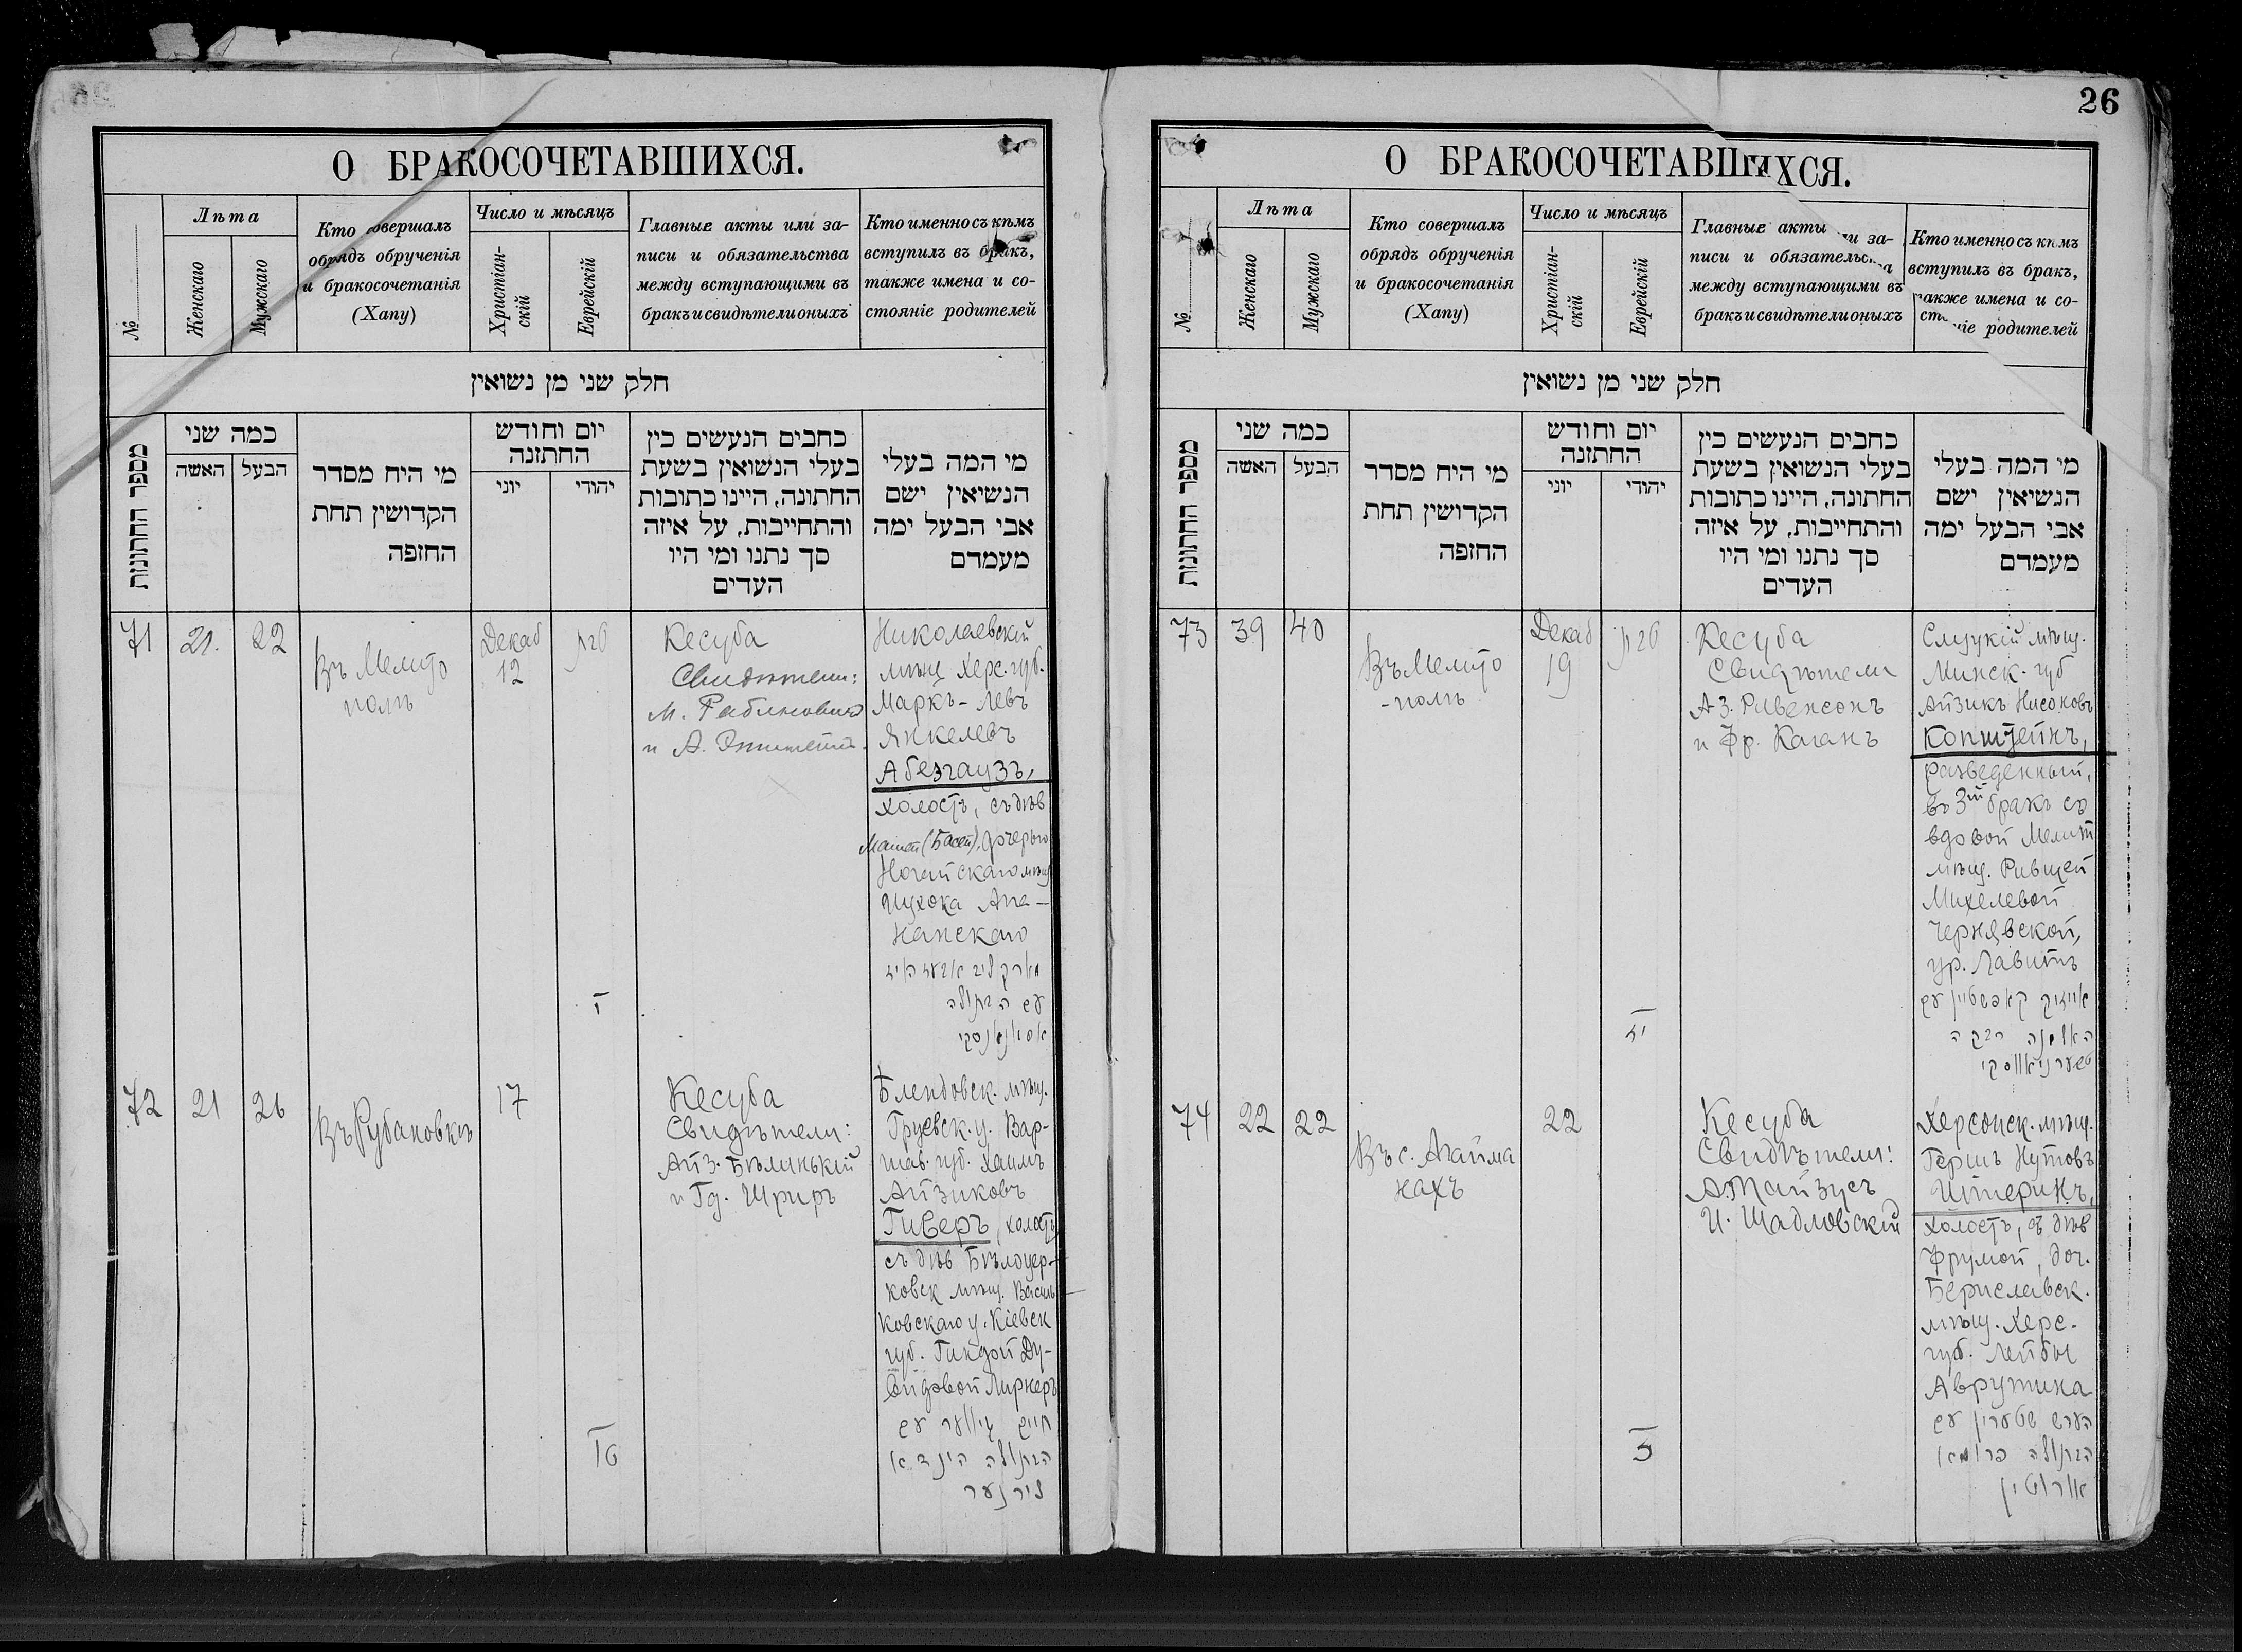 26
О БРАКОСОЧЕТАВШИХСЯ.
№
Лѣта
Женскаго
Мужскаго
Кто совершалъ
обрядъ обрученія
и бракосочетанія
(Хапу)
Число и мѣсяцъ
Христіан-
скій
Еврейскій
Главные акты или за-
писи и обязательства
между вступающими въ
бракъ и свидѣтели оныхъ
Кто именно съ кѣмъ
вступилъ въ бракъ,
также имена и со-
стояніе родителей
חלק שני מן נשואין
מספר החתונות
כמה שני
האשה
הבעל
מי היח מסדר
הקדושין תחת
החזפה
יום וחודש
החתזנה
יוני
יהודי
כחבים הנעשים כין
בעלי הנשואין בשעת
החתונה, היינו כתובות
והתחייבות, על איזה
סך נתנו ומי היו
העדים
מי המה בעלי
הנשיאין ישם
אבי הבעל ימה
מעמדם
71
21.
22
Въ Мелито
полѣ
Декаб
12
טבת
ז
Кесуба
Свидѣтели:
М. Рабиновичъ
и А.
Николаевскій
мѣщ Херс. губ.
Маркъ-Левъ
Янкелевъ
Абезгаузъ,
холостъ, съ дѣв
Машей (Басей), дочерью
Ногайскаго мѣщ
Ицхока Апа-
нанскаго
מארק ליב אבעזהויז
עם הבתולה
אפאנאנסקי
72
21
26
Въ Рубановкѣ
17
טו
Кесуба
Свидѣтели:
Айз. Бѣлинькій
и Гд. Шриръ
Блендовск. мѣщ.
Груевск. у. Вар-
шав. губ. Хаимъ
Айзиковъ
Гиверъ, холостъ
съ дѣв Бѣлоцер-
ковск мѣщ. Василь
ковскаго у. Кіевск
губ. Гиндой Ду-
видовой Лирнеръ
חיים גיווער עם
הבתולה הינדא
לירנער
О БРАКОСОЧЕТАВШИХСЯ.
№
Лѣта
Женскаго
Мужскаго
Кто совершалъ
обрядъ обрученія
и бракосочетанія
(Хапу)
Число и мѣсяцъ
Христіан-
скій
Еврейскій
Главные акты ли за-
писи и обязательства
между вступающими въ
бракъ и свидѣтели оныхъ
Кто именно съ кѣмъ
вступилъ въ бракъ,
также имена и со-
стояніе родителей
חלק שני מן נשואין
מספר החתונות
כמה שני
האשה
הבעל
מי היח מסדר
הקדושין תחת
החזפה
יום וחודש
החתזנה
יוני
יהודי
כחבים הנעשים כין
בעלי הנשואין בשעת
החתונה, היינו כתובות
והתחייבות, על איזה
סך נתנו ומי היו
העדים
מי המה בעלי
הנשיאין ישם
אבי הבעל ימה
מעמדם
73
39
40
Въ Мелито
-полѣ
Декаб
19
טבת
יד
Кесуба
Свидѣтели
Аз. Ривенсонъ
и Фр. Каганъ
Слуцкій мѣщ.
Минск. губ
Айзикъ Нисоновъ
Копштейнъ,
разведенный,
въ 3ій бракъ съ
вдовой Мелит
мѣщ. Ривцей
Михелевой
Чернявской,
ур. Лавитъ
אייזיק קאפשטיין עם
האלמנה רבקה
טשערניאווסקי
74
22
22
Въ с. Агайма
нахъ
22
Кесуба
Свидѣтели:
А. Майзусъ
И. Шадловскій
Херсонск. мѣщ.
Гершъ Нутовъ
Штеринъ,
холостъ, съ дѣв
Фрумой, доч.
Бериславск.
мѣщ. Херс.
губ. Лейбы
Аврутина
הערש שטערין עם
הבתולה פרומא
אוורוטין